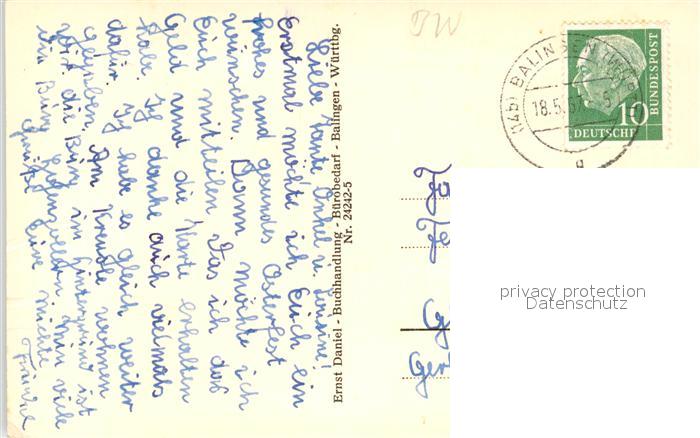 Liebe Tante Onkel u.
Erstmal möchte ich Euch ein
frohes und gesundes Osterfest
wünschen. Dann möchte ich
Euch mitteilen Das ich das
Geld und die Karte erhalten
habe. Ich danke auch vielmals
dafür. Ich habe es gleich weiter
gegeben. Am wohnen
wir. die Burg im Hintergrund ist
ein Burg Hohenzollern viele
Grüße Eure
Ernst Daniel - Buchhandlung - Bürobedarf - Balingen - Württbg.
Nr. 24242-5
BW
(14b) BALINGEN (WÜRTT)
18.5.
10
DEUTSCHE
BUNDESPOST
privacy protection
Datenschutz